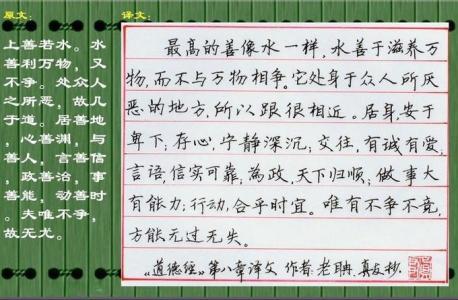 原文：
上善若水。水
善利万物，又
不争。处众人
之所恶，故几
于道。居善地
，心善渊，与
善人，言善信
，政善治，事
善能，动善时
。夫唯不争，
故无尤。
译文：
最高的善像水一样，水善于滋养万
物，而不与万物相争。它处身于众人所厌
恶的地方，所以跟很相近。居身，安于
卑下；存心，宁静深沉；交往，有诚有爱；
言语，信实可靠；為政，天下归顺；做事大
有能力；行动，合乎时宜。唯有不争不竞，
方能元过无失。
《道德经》第八章译文 作者老聃 真友抄